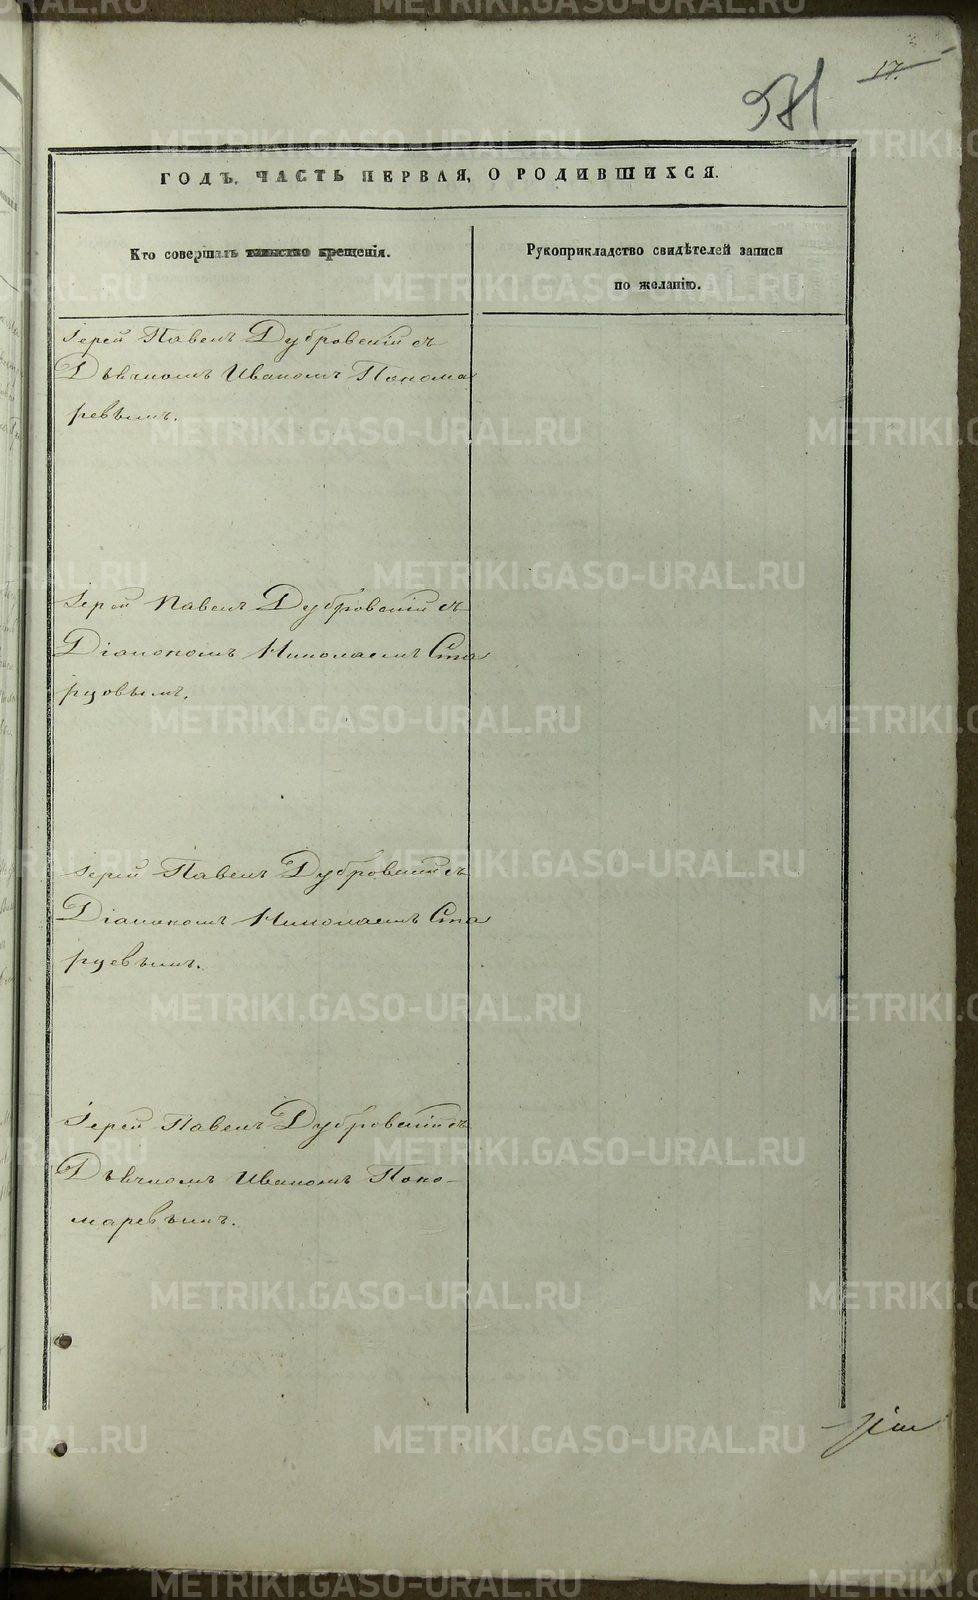 17.
571
ГОДЪ. ЧАСТЬ ПЕРВАЯ, О РОДИВШИХСЯ.
Кто совершалъ таинство крещенія.
Рукоприкладство свидѣтелей записи
по желанію.
Іерей Павелъ Дубровскій съ
Дьячкомъ Иваномъ Понома
ревымъ.
Іерей Павелъ Дубровскій съ
Діакономъ Николаемъ Ста
рцовымъ.
Іерей Павелъ Дубровскій съ
Діакономъ Николаемъ Ста
рцевымъ.
Іерей Павелъ Дубровскій съ
Дьячкомъ Иваномъ Поно-
маревымъ.
METRIKI.GASO-URAL.RU